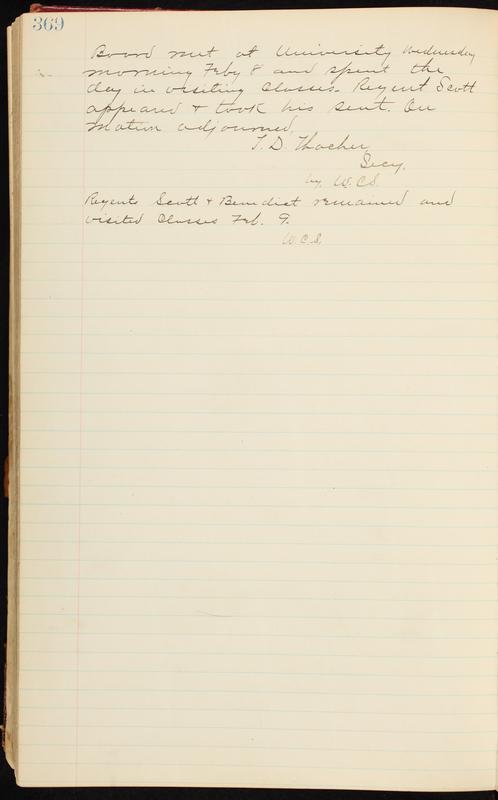 369
Board met at University Wednesday
morning Feby 8 and spent the
day in visiting Classes. Regent Scott
appeared + took his seat. On
motion adjourned,
T. D. Thacher,
Secy.
by W.C.S.
Regents Scott + Benedict remained and
visited Classes Feb. 9.
W.C.S.